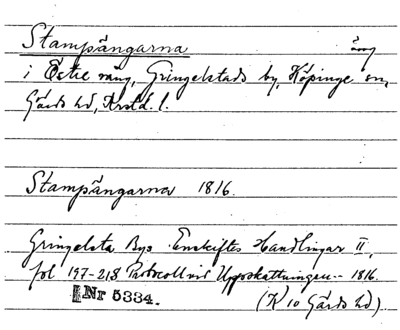 Stampängarna äng
i Östre mäng, Gringelstads by, Köpinge sn,
Gärds hd, Krist. l.
Stampängarna 1816.
Gringelsta Bys Enskiftes Handlingar II,
fol 197-218 Protocoll vid Uppskattningen -- 1816.
Nr 5334. (K 10 Gärds hd).